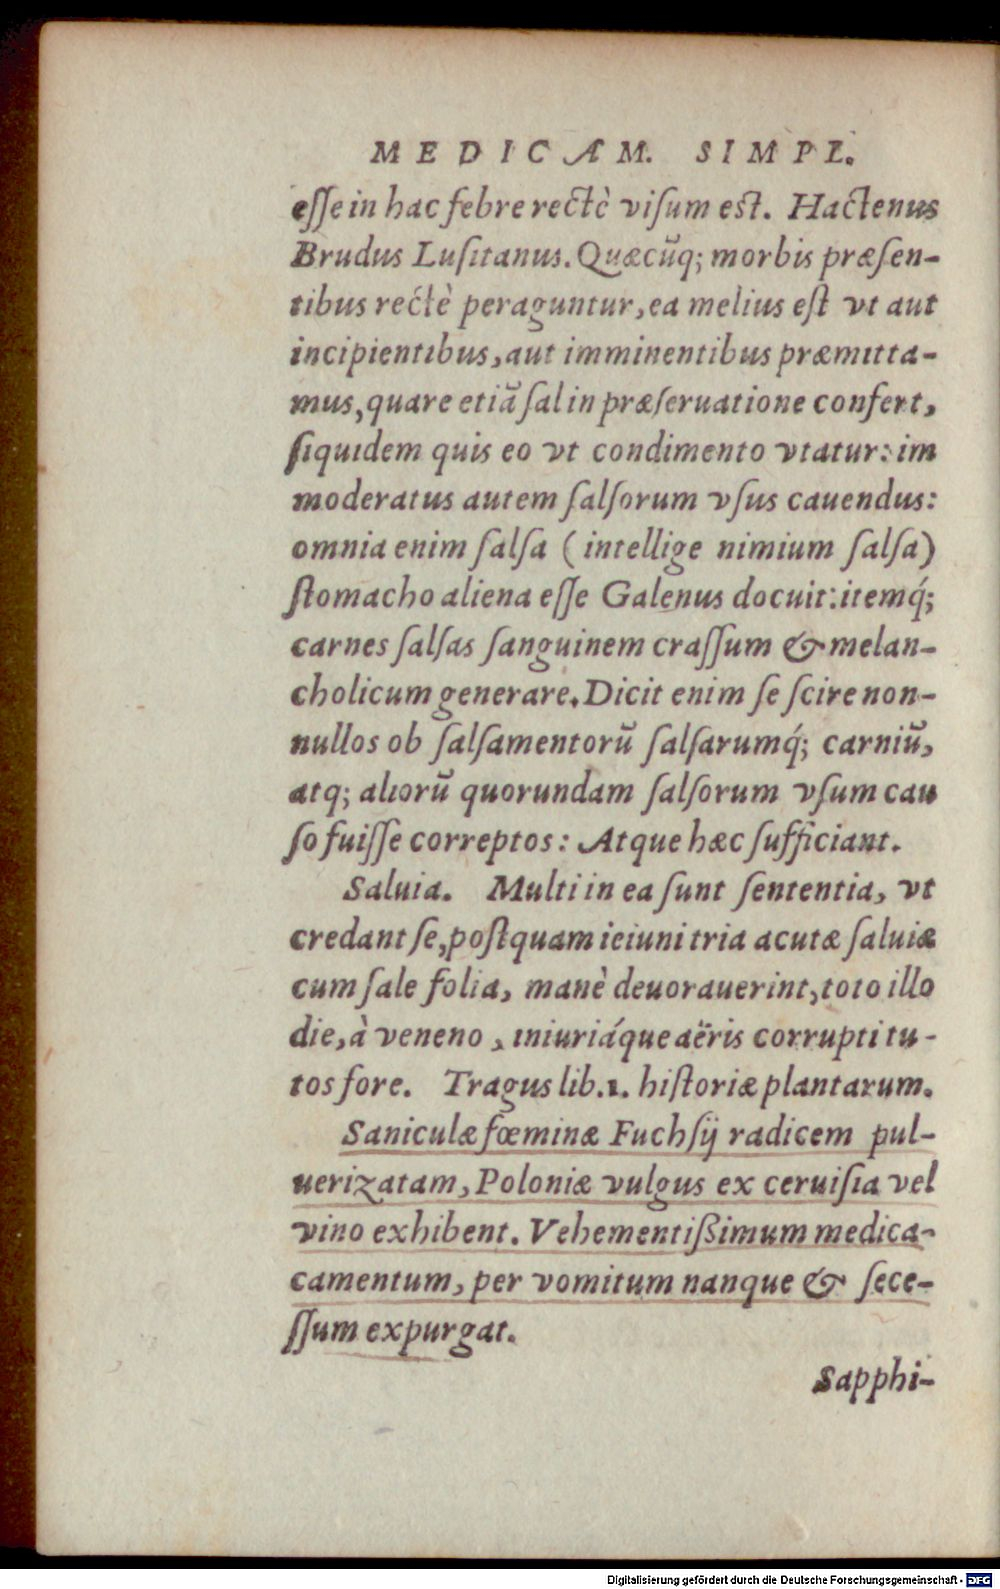 MEDICAM. SIMPL.
eſſe in hac febre rectè viſum est. Hactenus
Brudus Luſitanus. Quæcũq; morbis præſen-
tibus rectè peraguntur, ea melius eſt vt aut
incipientibus, aut imminentibus præmitta-
mus, quare etiã ſal in præſeruatione confert,
ſiquidem quis eo vt condimento vtatur: im
moderatus autem ſalſorum vſus cauendus:
omnia enim ſalſa (intellige nimium ſalſa)
ſtomacho aliena eſſe Galenus docuit: itemq́;
carnes ſalſas ſanguinem craſſum & melan-
cholicum generare. Dicit enim ſe ſcire non-
nullos ob ſalſamentorũ ſalſarumq́; carniũ,
atq; aliorũ quorundam ſalſorum vſum cau
ſo fuiſſe correptos: Atque hæc ſufficiant.
Saluia. Multi in ea ſunt ſententia, vt
credant ſe, poſtquam ieiuni tria acutæ ſaluiæ
cum ſale folia, manè deuorauerint, toto illo
die, à veneno, iniuriáque aëris corrupti tu-
tos fore. Tragus lib. 1. hiſtoriæ plantarum.
Saniculæ fœminæ Fuchſij radicem pul-
uerizatam, Poloniæ vulgus ex ceruiſia vel
vino exhibent. Vehementißimum medica-
camentum, per vomitum nanque & ſece-
ſſum expurgat.
Sapphi-
Digitalisierung gefördert durch die Deutsche Forschungsgemeinschaft - DFG